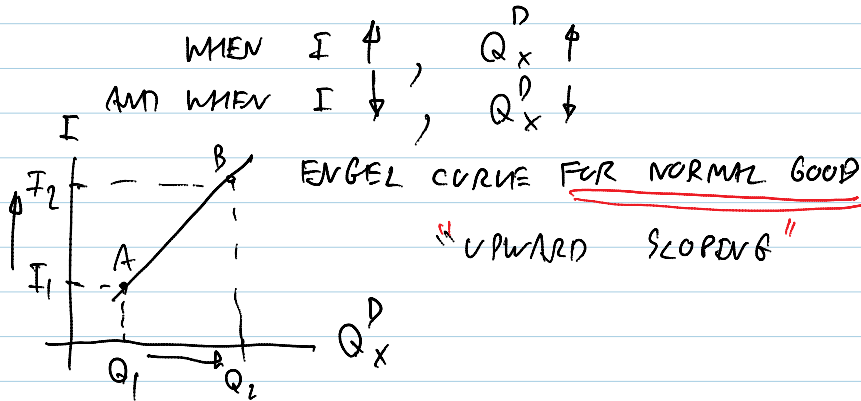 WHEN I ↑, Q_X^D ↑
AND WHEN I ↓, Q_X^D ↓
I
B
ENGEL CURVE FOR NORMAL GOOD
I₂
"UPWARD SLOPING"
A
I₁
Q_X^D
Q₁
Q₂